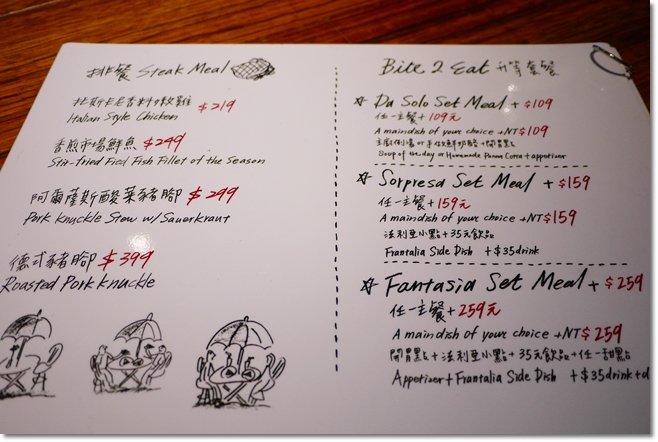 排餐 Steak Meal
托斯卡尼香料嫩雞 $219
Italian Style Chicken
香煎市場鮮魚 $249
Stir-fried Ficd Fish Fillet of the Season
阿爾薩斯酸菜豬腳 $299
Pork Knuckle Stew w/ Sauerkraut
德式豬腳 $399
Roasted Pork Knuckle
Bite 2 Eat 升等套餐
Da Solo Set Meal + $109
任一主餐 + 109元
A maindish of your choice +NT$109
Soup of the day or Homemade Panna Cotta + appetizer
Sorpresa Set Meal + $159
任一主餐 + 159元
A maindish of your choice +NT$159
法利亞小點 + 35元飲品
Frantalia Side Dish + $35drink
Fantasia Set Meal + $259
任一主餐 + 259元
A maindish of your choice +NT$259
開胃點 + 法利亞小點 + 35元飲品 + 任一甜點
Appetizer + Frantalia Side Dish + $35drink + d